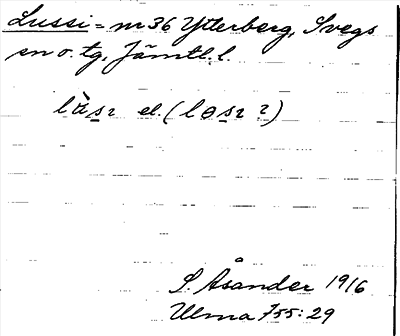 Lussi = m 36 Ytterberg, Svegs
sn o. tg, Jämtl. l.
làsı el. (lɵsı ?)
S. Åsander 1916
Ulma 755:29